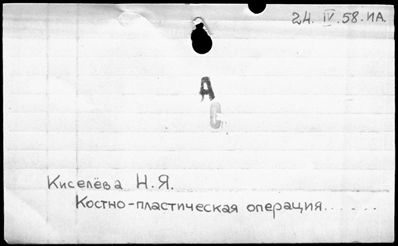 24. IV. 58. ИА.
А
С
Киселёва Н.Я.
Костно-пластическая операция......